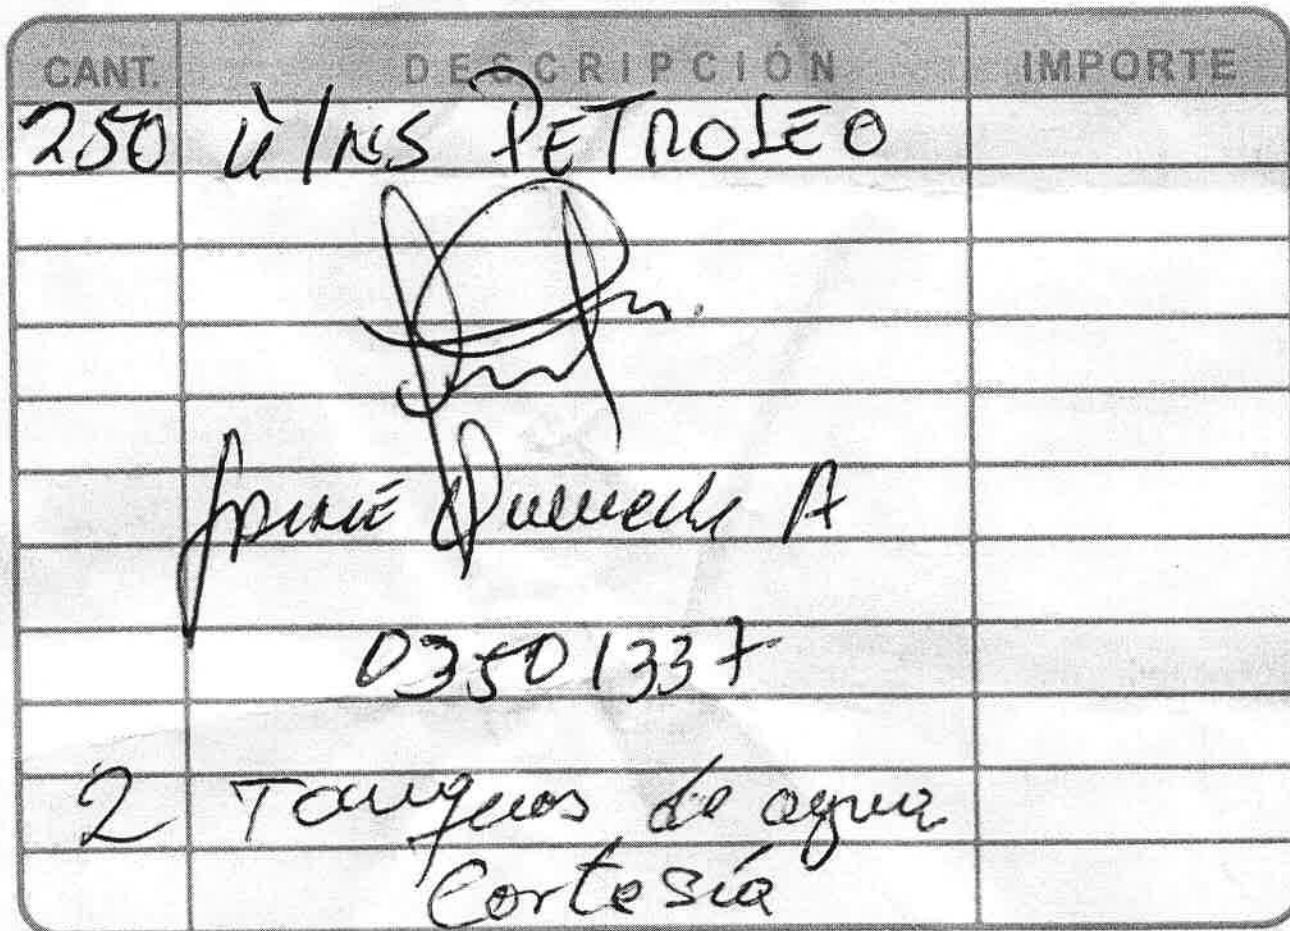 CANT. DESCRIPCIÓN IMPORTE
250 PETROLEO
A
03501337
2 Tanques de agua
Cortesía